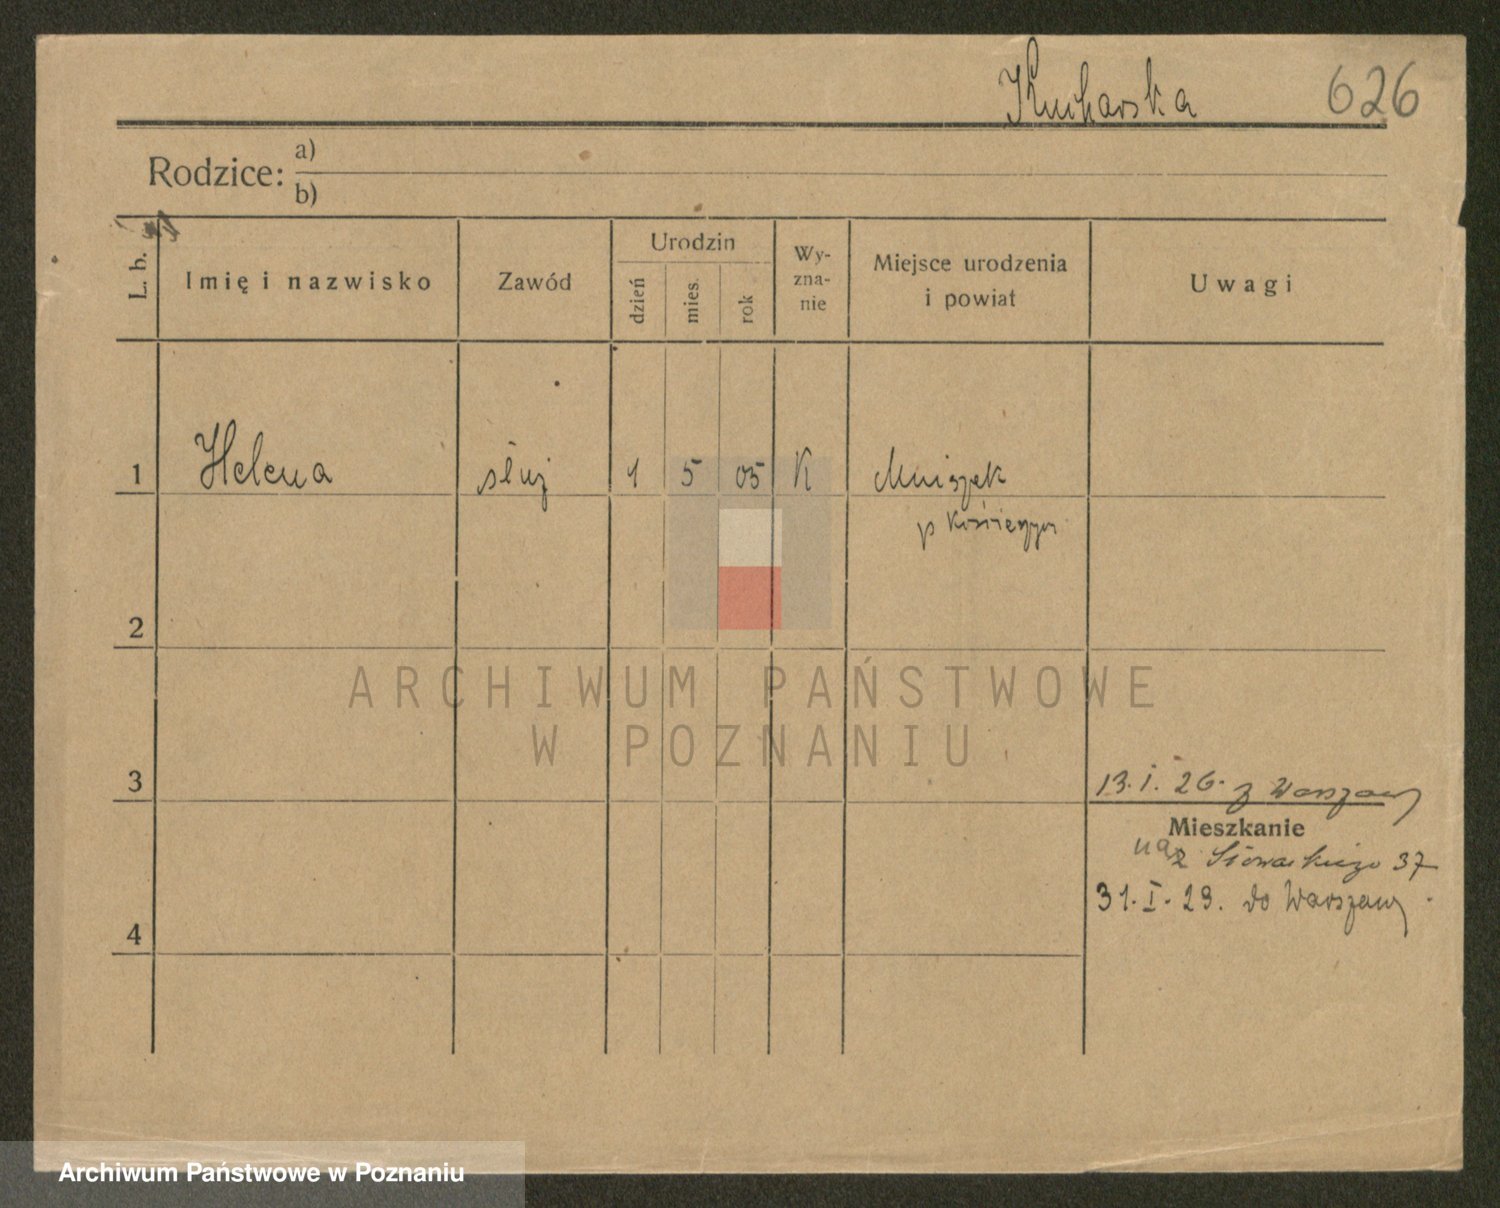 Kucharska 626
Rodzice: a)
b)
L. b. Imię i nazwisko Zawód Urodzin dzień mies. rok Wyznanie Miejsce urodzenia i powiat Uwagi
1 Helena służ 1 5 05 K Mniszek
p
2
ARCHIWUM PAŃSTWOWE
W POZNANIU
3 13. I. 26. z Warszawy
Mieszkanie
Słowackiego 37
31. I. 29. do Warszawy.
4
Archiwum Państwowe w Poznaniu